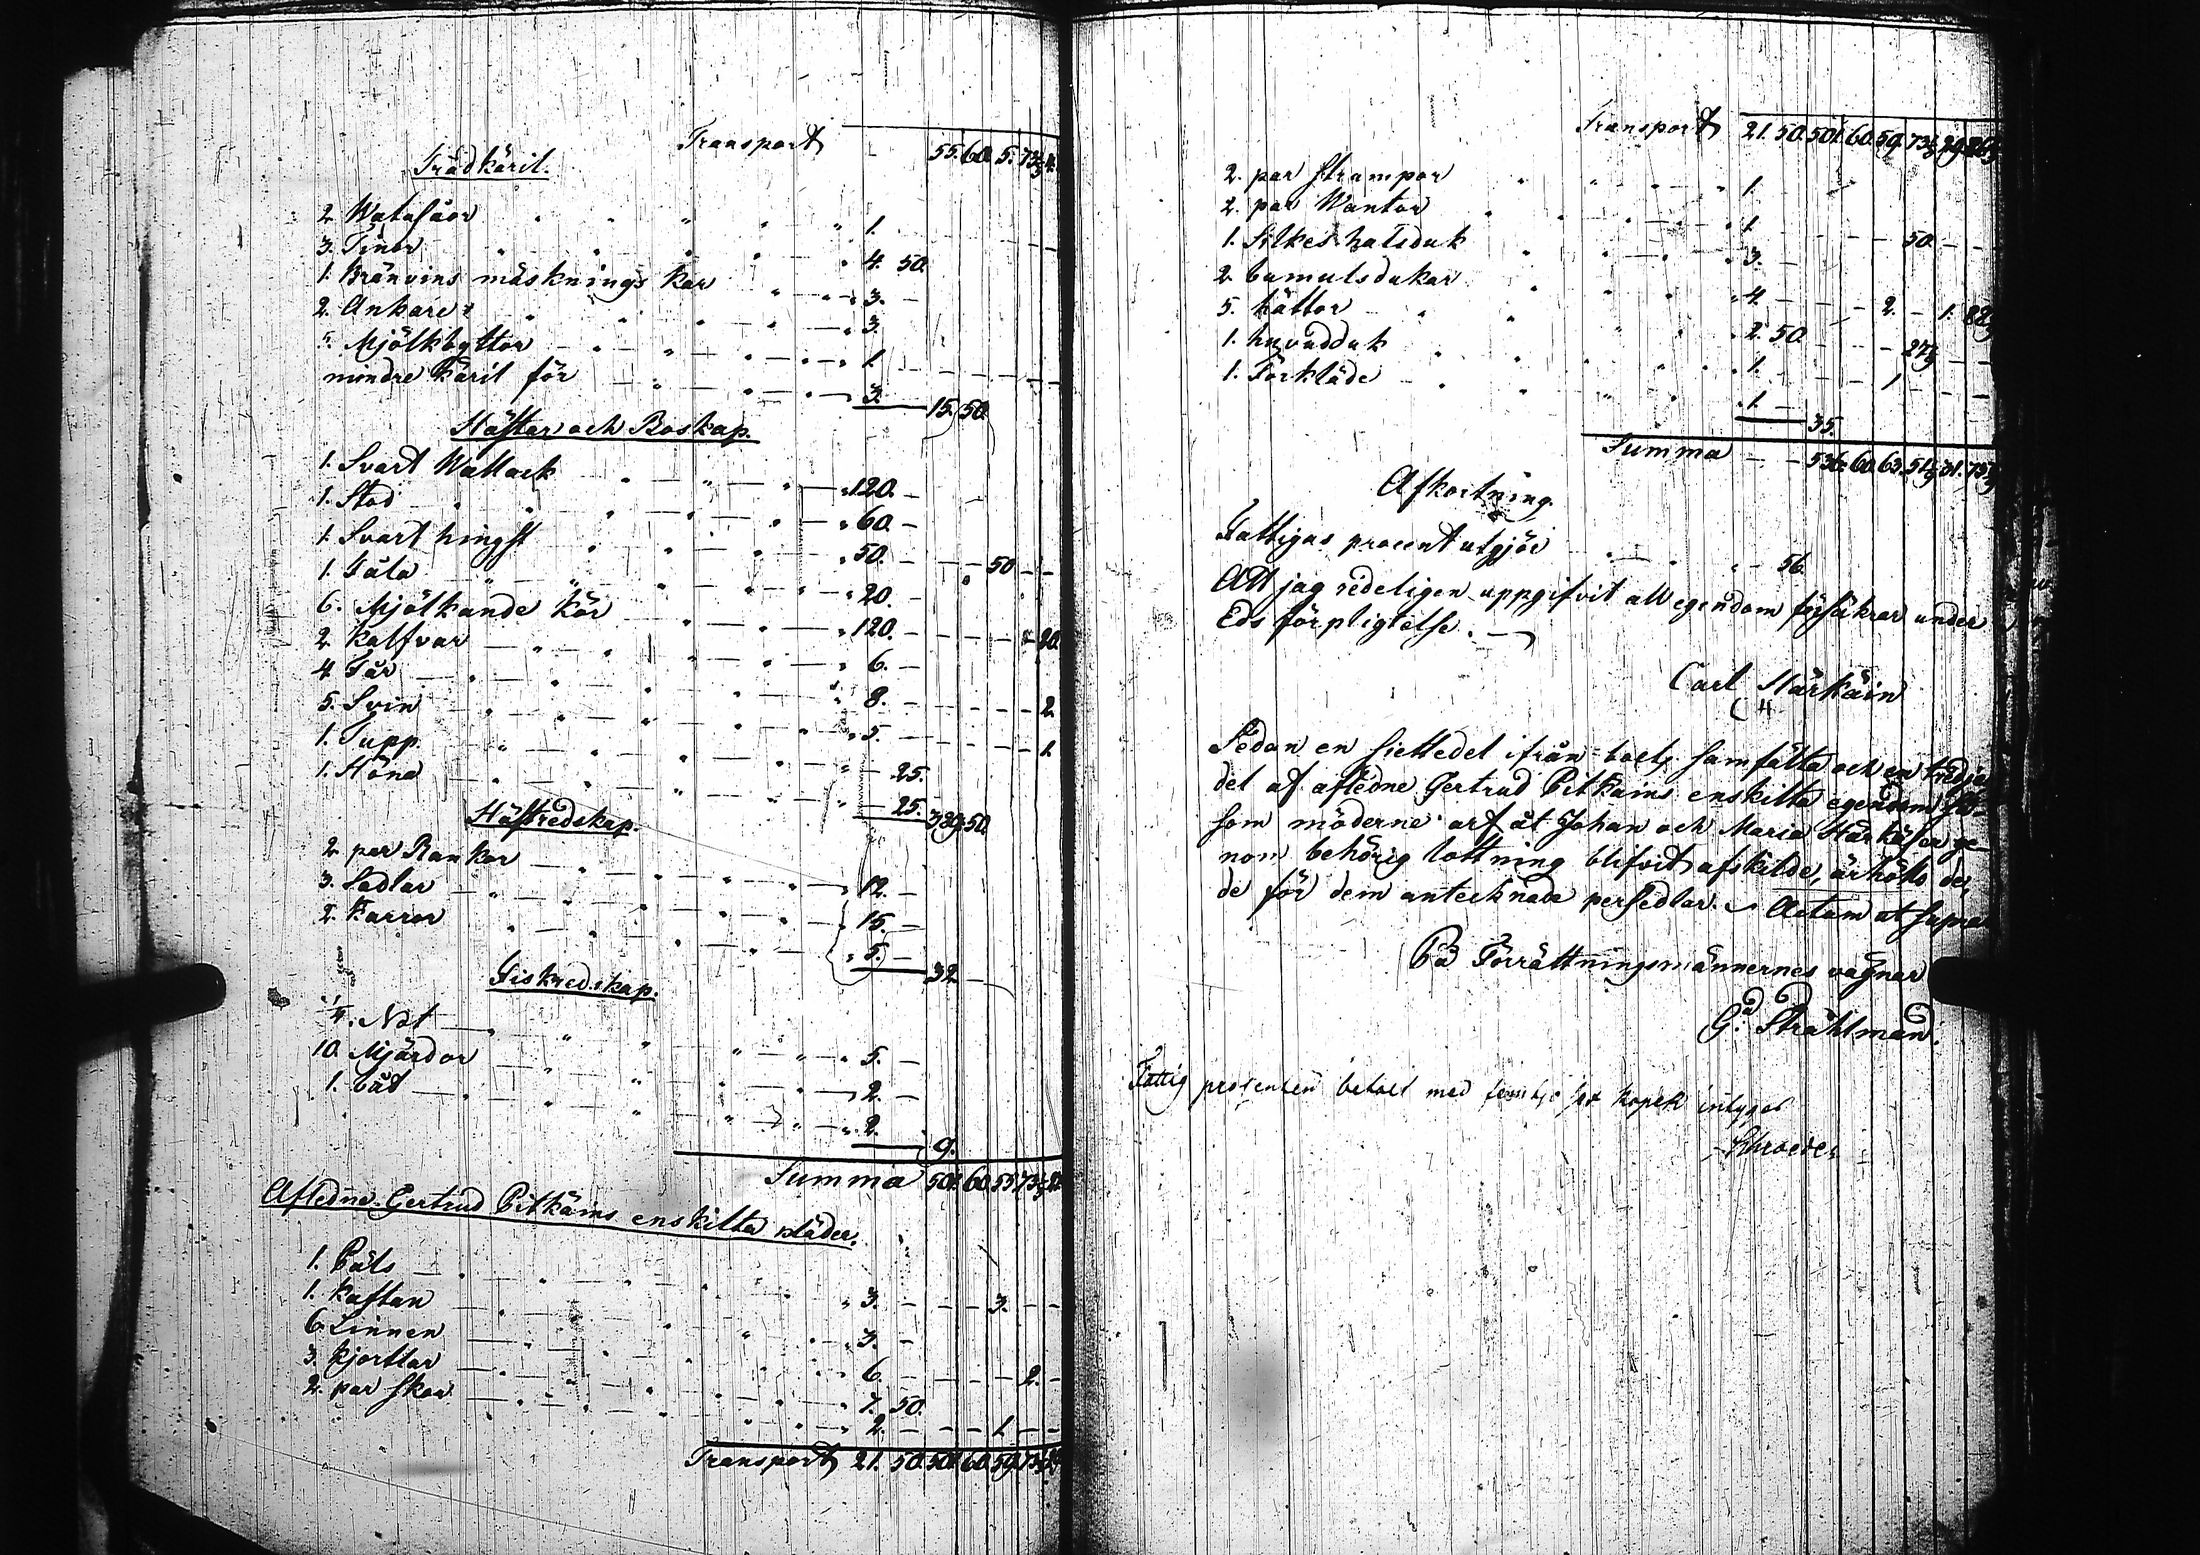 Transport 55. 60. 5. 73⅓
Trädkäril.
2. Watusåar 1.
3. Tinor 4. 50.
1. Bränvins mäsknings kar 3.
2. Ankare 3.
5. Mjölkbyttor 1.
mindre käril för 3. 15. 50.
Hästar och Boskap.
1. Svart Wallack 120.
1. Stod 60.
1. Svart hingst 50. 50
1. Fåla 20.
6. Mjölkande kör 120. 20.
2. kalfvar 6.
4. Får 8. 2.
5. Svin 5. 1.
1. Tupp 25.
1. Höna 25. 389. 50.
Hästredskap.
2. par Rankor 12.
3. Sadlar 15.
2. Karror 5. 32.
Fiskredskap.
¼. Not 5.
10. Mjärdor 2.
1. båt 2. 9.
Summa 501. 60. 55. 73⅓
Afledne Gertrud Pitkäins enskilta kläder.
1. Päls 3. 3.
1. Kaftan 3.
6. Linnen 6. 2.
3. kjortlar 7. 50.
2. par skor 2. 1.
Transport 21. 50. 501. 60. 59. 73⅓
Transport 21. 50. 501. 60. 59. 73⅓
2. par strumpor 1.
2. par Wantar 1. 50.
1. Silkes halsduk 3.
2. bumulsdukar 4. 2. 1.
5. hättor 2. 50
1. huvudduk 1. 1
1. Förkläde 1. 35.
Summa 536. 60. 63.
Afkortning.
Fattigas procent utgjör 56.
Att jag redeligen uppgifvit all egendom försäkrar under
Eds förpligtelse.
Carl Härkäin
Sedan en siettedel ifrån boets samfälta och en tredje
del af afledne Gertrud Pitkäins enskilta egendom så-
som möderne arf åt Johan och Maria Härkäin ge-
nom behörig lottning blifvit afskilde, ärhölts de,
de för dem antecknade persedlar. Actum ut supra
På Förrättningsmännernes vägnar
G:d Stråhlman.
Fattig procenten betalt med femtjo sex kopek intygas
Schroeder